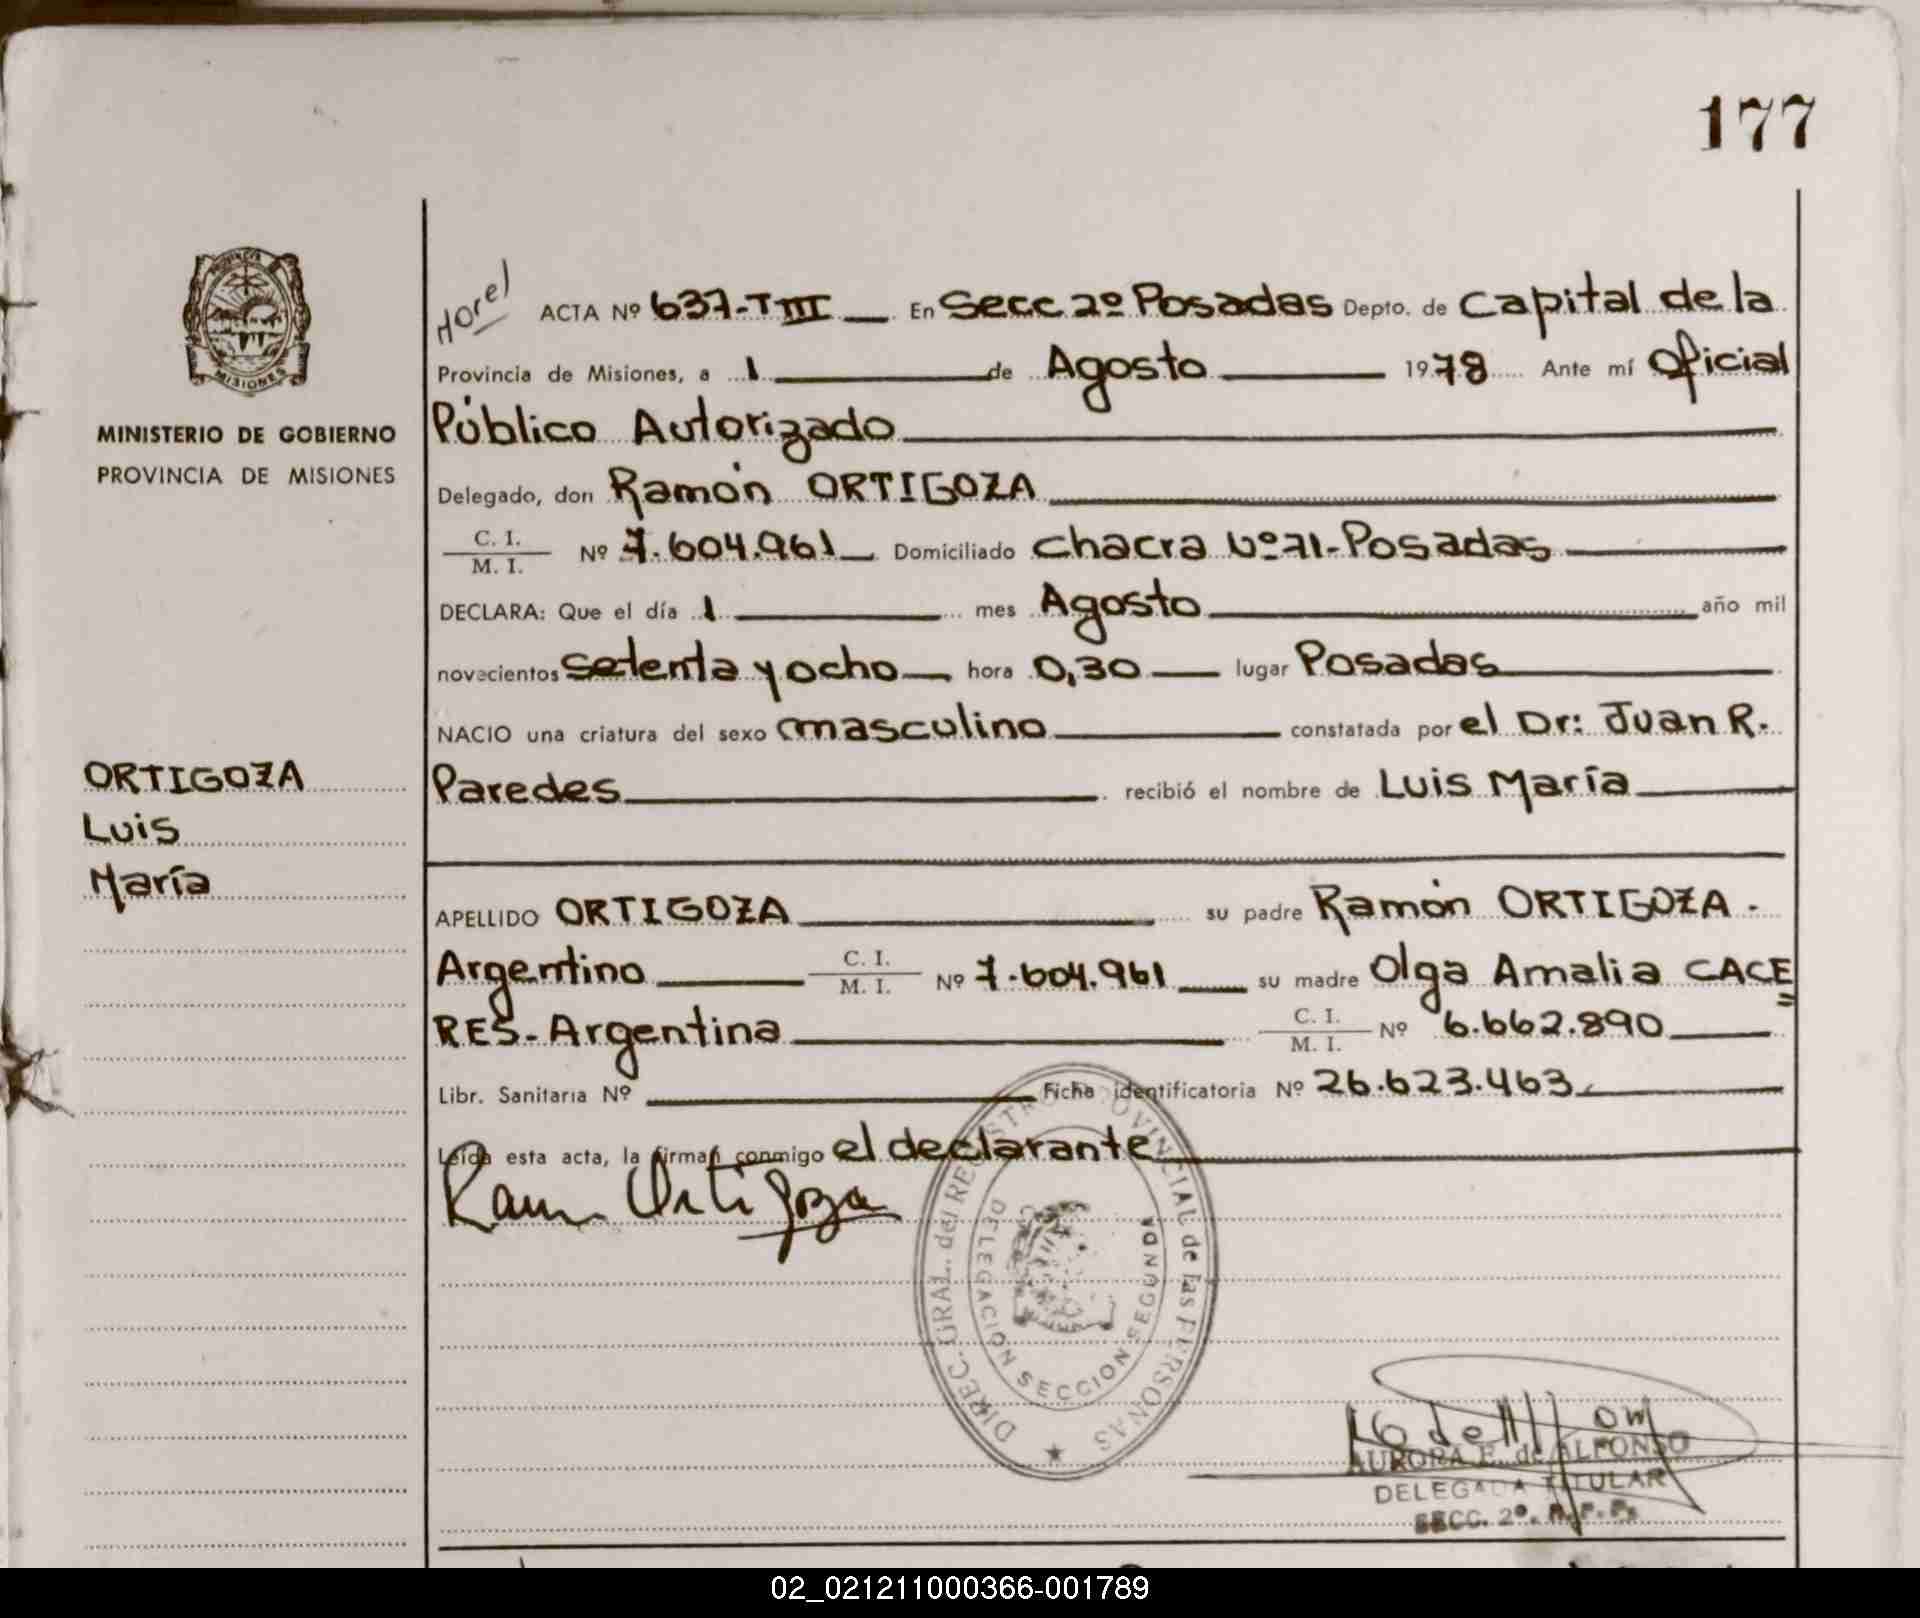 177
MINISTERIO DE GOBIERNO
PROVINCIA DE MISIONES
ORTIGOZA
Luis
María
ACTA Nº 637-TIII En Secc 2º Posadas Depto. de Capital de la
Provincia de Misiones, a 1 de Agosto 1978 Ante mí Oficial
Público Autorizado
Delegado, don Ramón ORTIGOZA
C. I.
M. I. Nº 7.604.961 Domiciliado Chacra Nº 71-Posadas
DECLARA: Que el día 1 mes Agosto año mil
novecientos setenta y ocho hora 0,30 lugar Posadas
NACIO una criatura del sexo masculino constatada por el Dr: Juan R.
Paredes recibió el nombre de Luis María
APELLIDO ORTIGOZA su padre Ramón ORTIGOZA.
Argentino C. I. M. I. Nº 7.604.961 su madre Olga Amalia CACE=
RES- Argentina C. I. M. I. Nº 6.662.890
Libr. Sanitaria Nº Ficha identificatoria Nº 26.623.463
Leída esta acta, la firman conmigo el declarante
Ramon Ortigoza
DIREC. GRAL. del REGISTRO PROVINCIAL de las PERSONAS
DELEGACION SECCION SEGUNDA
AURORA E. de ALFONSO
DELEGADA TITULAR
SECC. 2º. R.P.P.
MISIONES
02_021211000366-001789